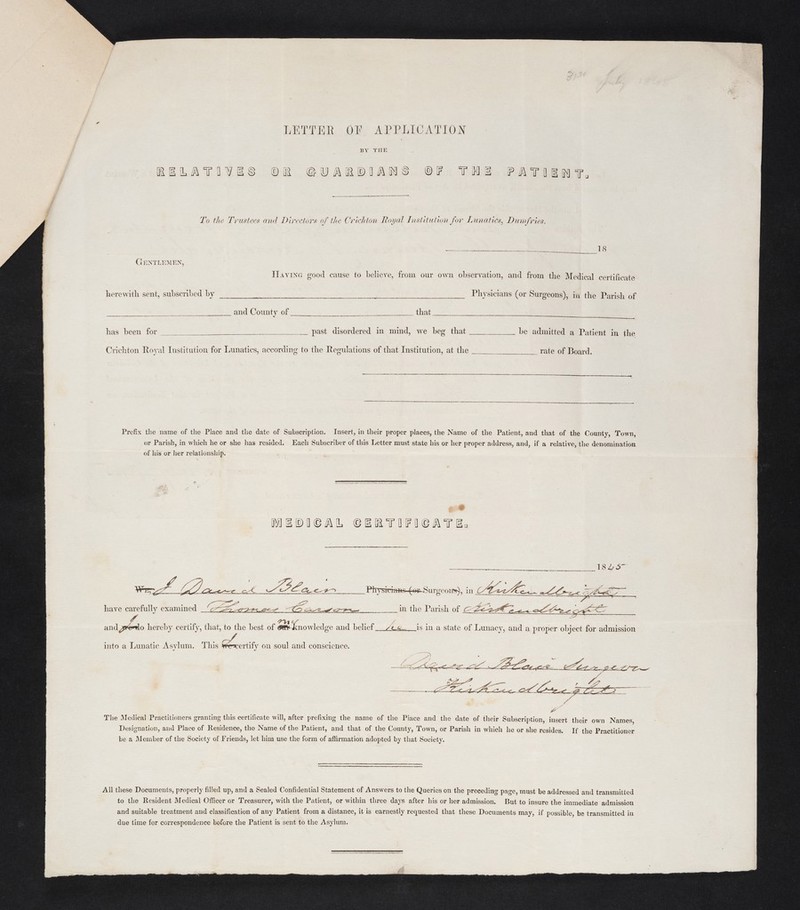 31st July
LETTER OF APPLICATION
BY THE
RELATIVES OR GUARDIANS OF THE PATIENT.
To the Trustees and Directors of the Crichton Royal Institution for Lunatics, Dumfries.
18
GENTLEMEN,
HAVING good cause to believe, from our own observation, and from the Medical certificate
herewith sent, subscribed by Physicians (or Surgeons), in the Parish of
and County of that
has been for past disordered in mind, we beg that be admitted a Patient in the
Crichton Royal Institution for Lunatics, according to the Regulations of that Institution, at the rate of Board.
Prefix the name of the Place and the date of Subscription. Insert, in their proper places, the Name of the Patient, and that of the County, Town,
or Parish, in which he or she has resided. Each Subscriber of this Letter must state his or her proper address, and, if a relative, the denomination
of his or her relationship.
MEDICAL CERTIFICATE.
1845
We, I David Blair Physicians (or Surgeons), in Kirkcudbright
have carefully examined Thomas Carson in the Parish of Kirkcudbright
and I do hereby certify, that, to the best of our my knowledge and belief he is in a state of Lunacy, and a proper object for admission
into a Lunatic Asylum. This we I certify on soul and conscience.
David Blair Surgeon
Kirkcudbright
The Medical Practitioners granting this certificate will, after prefixing the name of the Place and the date of their Subscription, insert their own Names,
Designation, and Place of Residence, the Name of the Patient, and that of the County, Town, or Parish in which he or she resides. If the Practitioner
be a Member of the Society of Friends, let him use the form of affirmation adopted by that Society.
All these Documents, properly filled up, and a Sealed Confidential Statement of Answers to the Queries on the preceding page, must be addressed and transmitted
to the Resident Medical Officer or Treasurer, with the Patient, or within three days after his or her admission. But to insure the immediate admission
and suitable treatment and classification of any Patient from a distance, it is earnestly requested that these Documents may, if possible, be transmitted in
due time for correspondence before the Patient is sent to the Asylum.